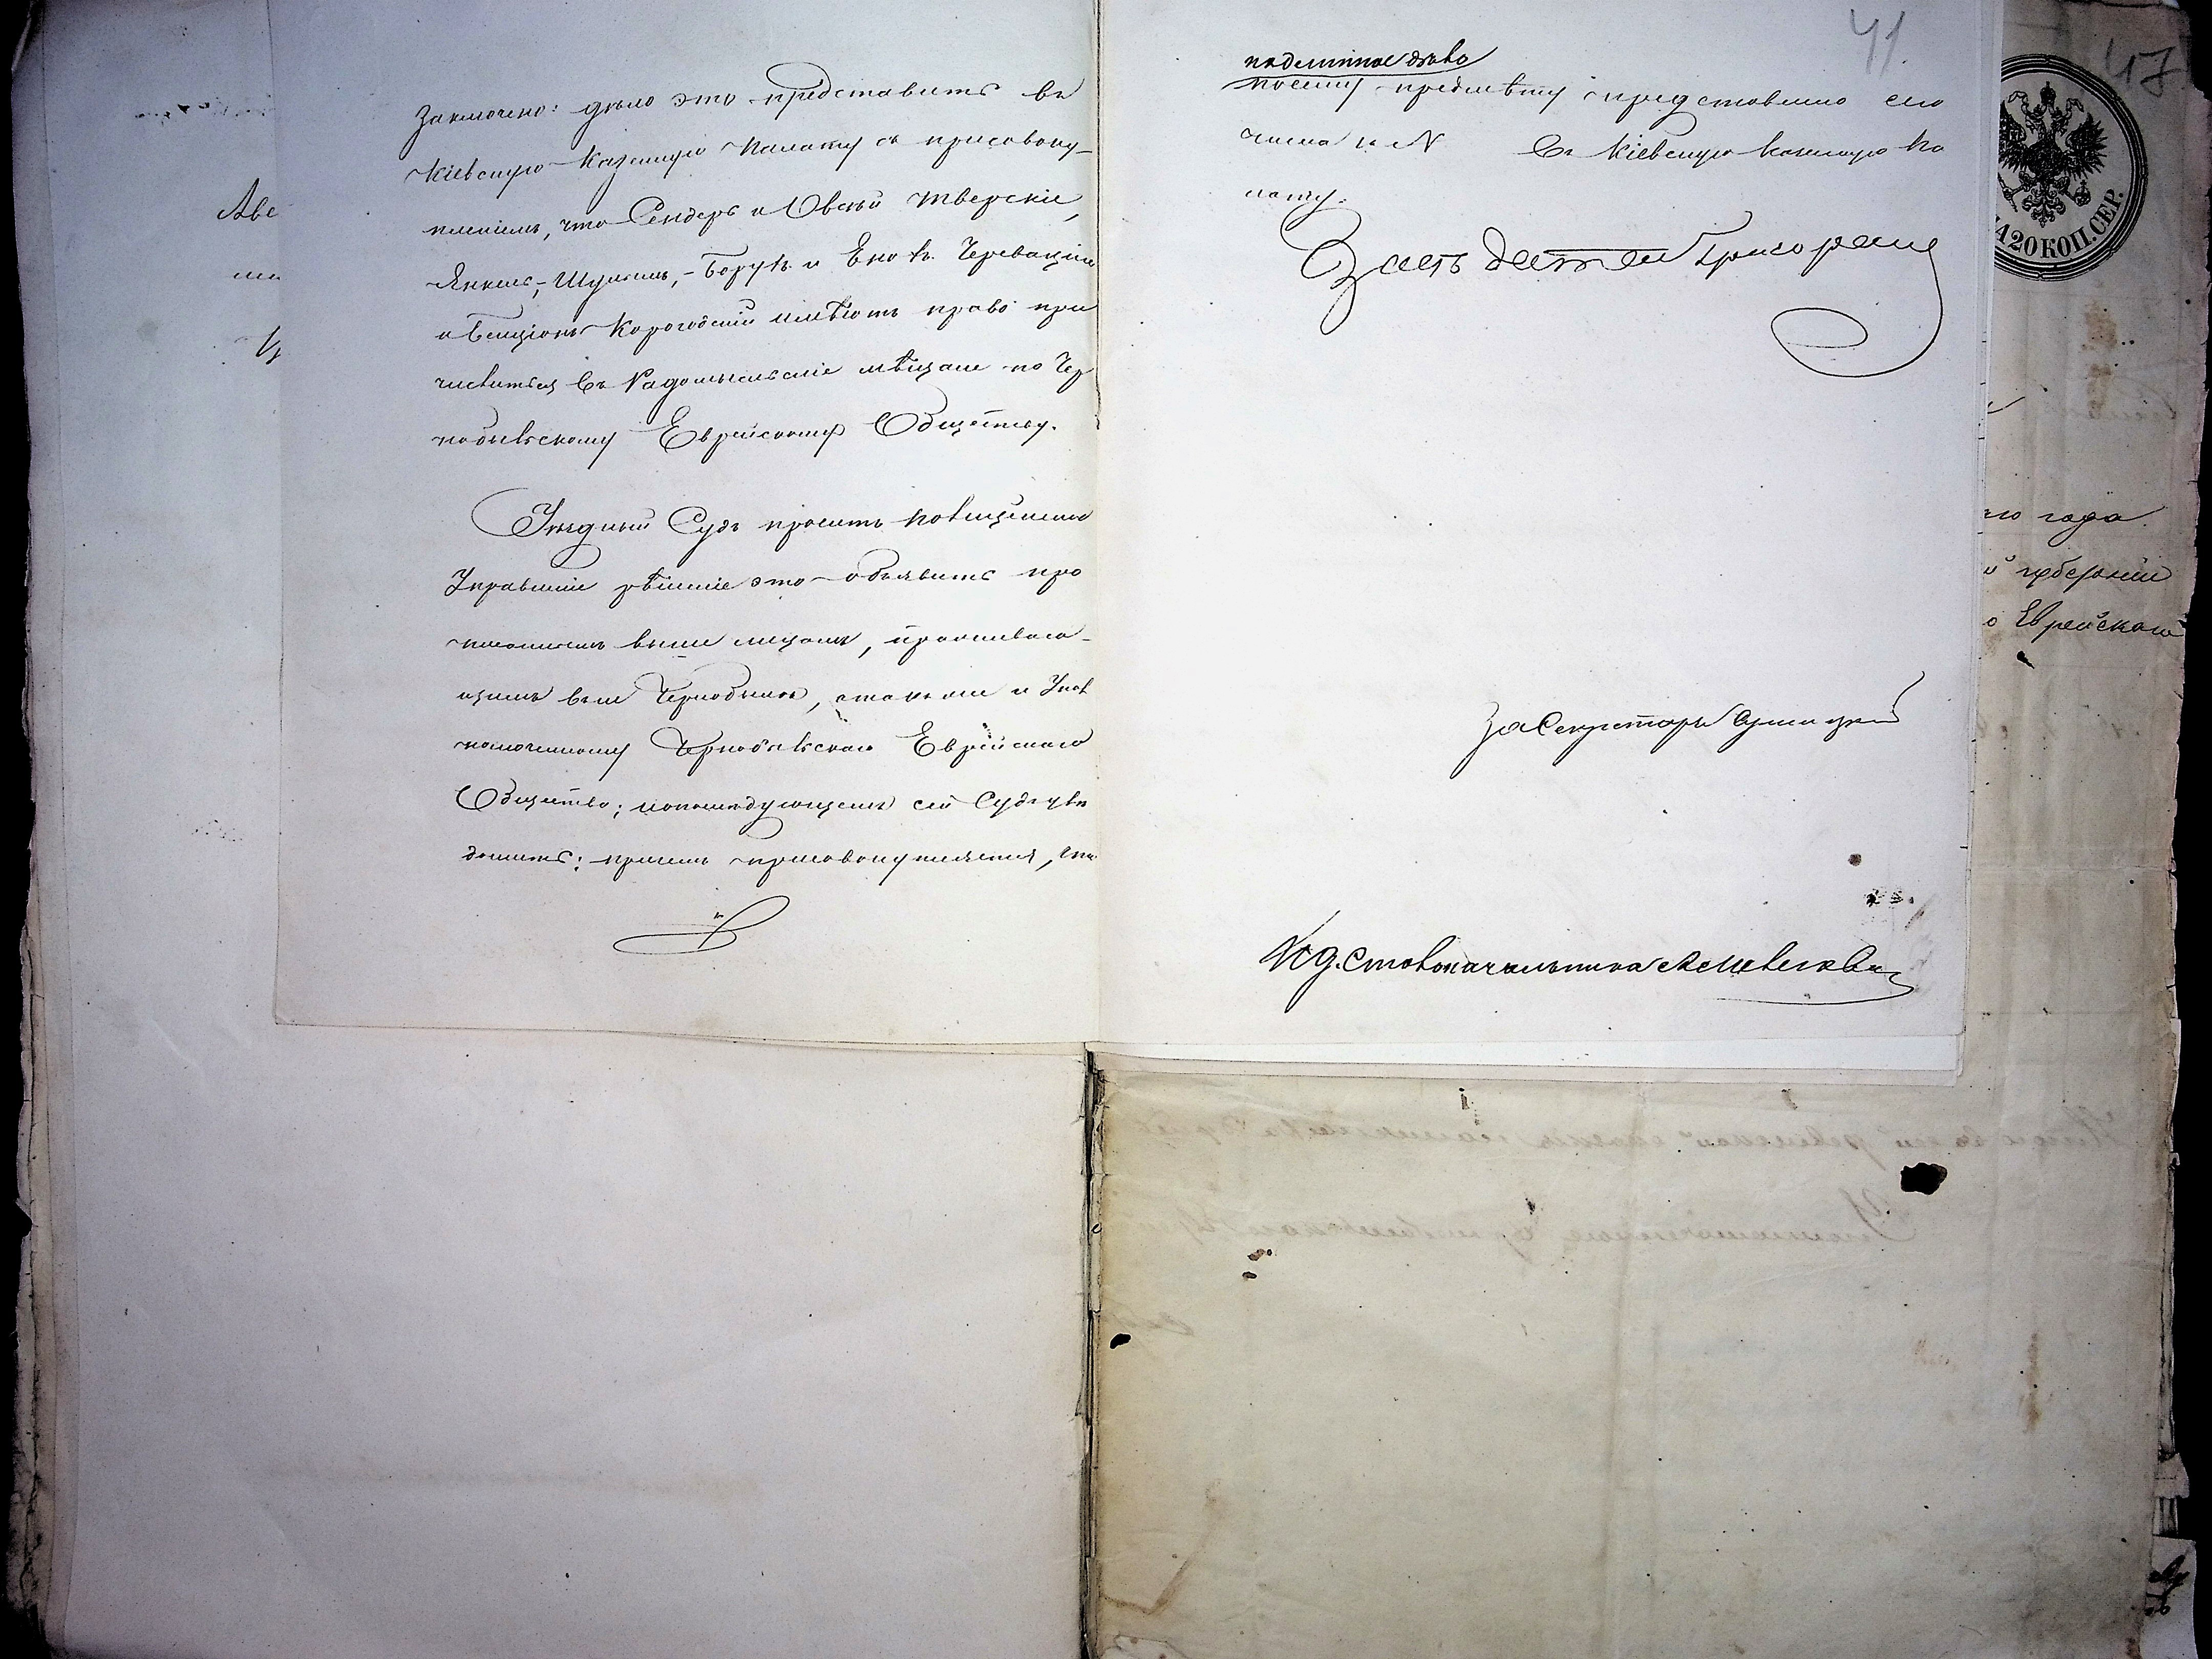 Заключено: дѣло это представить въ
Кіевскую Казенную Палату съ присовоку-
пленіемъ, что Сендеръ и Овсѣй Тверскіе,
Янкель, Шулимъ, Борухъ и Екова Черевацкіе
и Бенціонъ Корогодскій имѣютъ право при
числиться въ Радомысльскіе мѣщане по Чер
нобыльскому Еврейскому Обществу.
Уѣздный Судъ проситъ Полицейское
Управленіе рѣшеніе это объявить про
писаннымъ выше лицамъ, проживаю-
щимъ въ м. Чернобылѣ, а также и Упол
номоченному Чернобыльскаго Еврейскаго
Общества; и о послѣдующемъ сей Судъ увѣ
домить; причемъ присовокупляется, что
41
подлинное дѣло
по сему предмѣту представлено сего
числа за N Въ Кіевскую Казенную Па
лату.
Засѣдатель
За Секретаря
Ис.д. Столоначальника
47
20 КОП. СЕР.
го года
й губерніи
о Еврейскаго
Аве